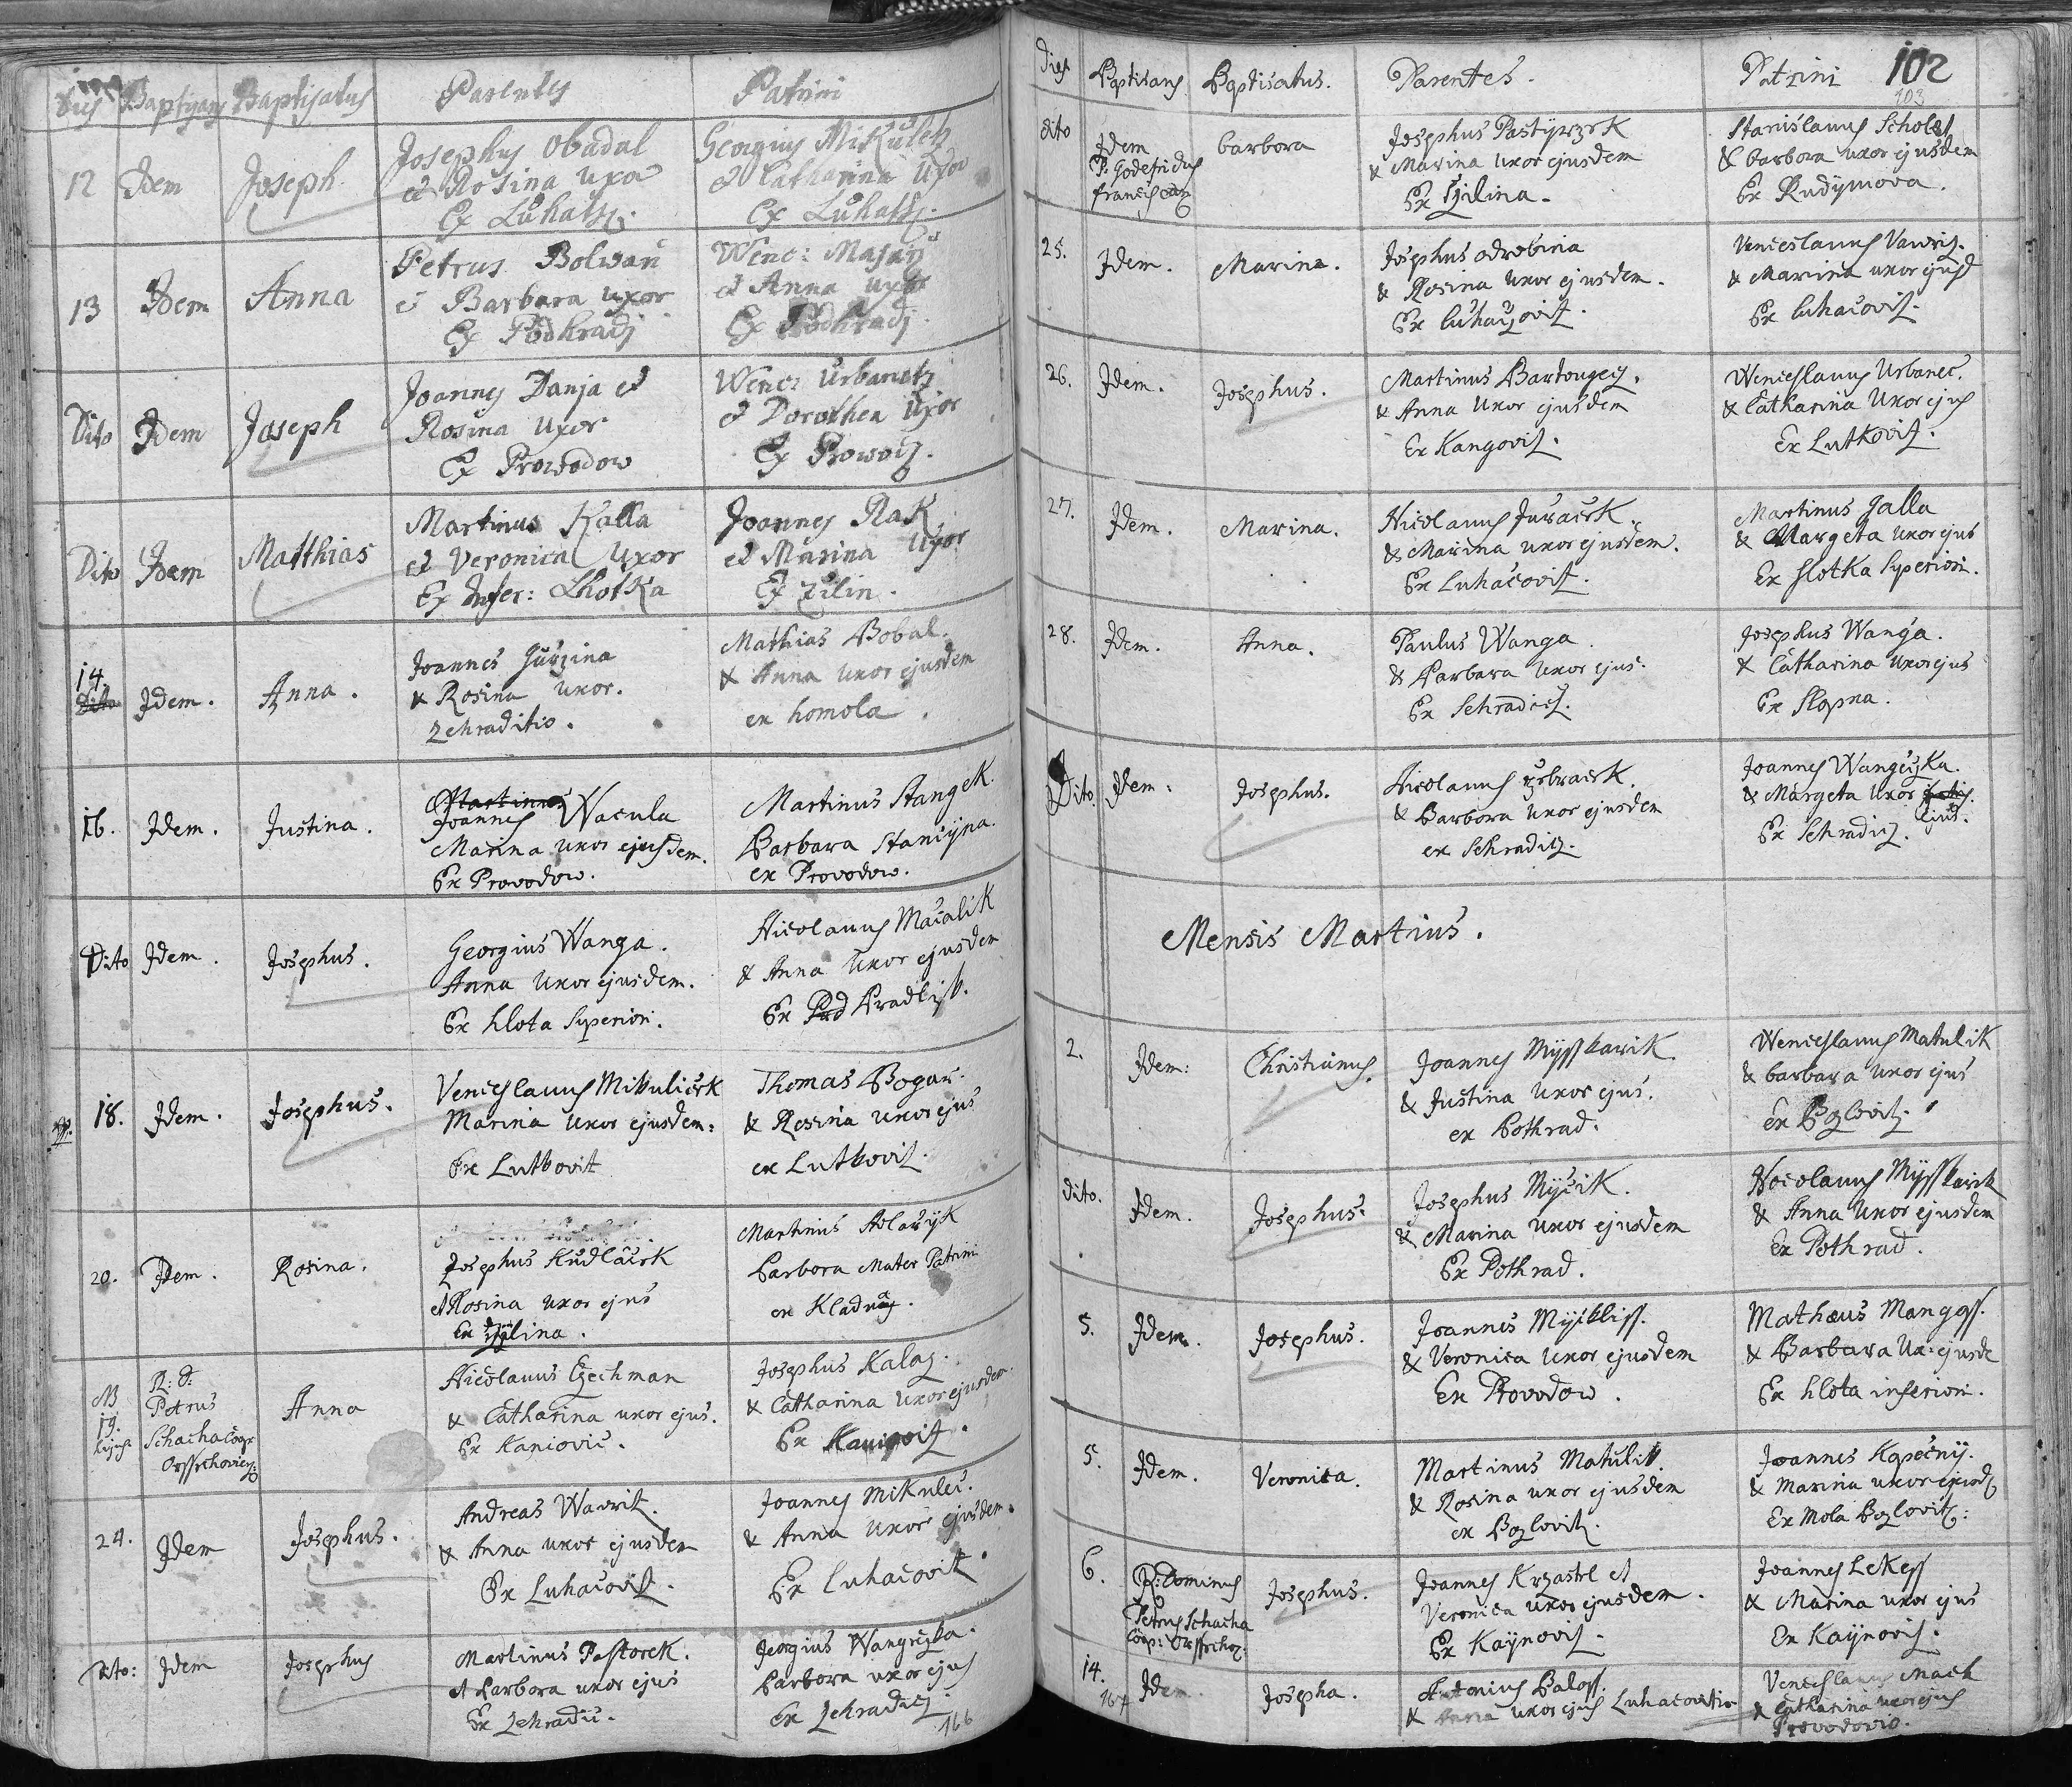 Dies Baptizans Baptisatus Parentes Patrini
12 Idem Joseph
Josephus Obadal
et Rosina Uxor
Ex Luhatz.
Georgius Mikuletz
et Catharina Uxor
Ex Luhatz.
13 Idem Anna
Petrus Bolwan
et Barbara Uxor
Ex Podhradj
Wenc: Masaÿ
et Anna Uxor
Ex Podhradj
Dito Idem Joseph
Joannes Danja et
Rosina Uxor
Ex Prowodow
Wenc: Urbanetz
et Dorothea Uxor
Ex Prowod.
Dito Idem Matthias
Martinus Kalla
et Veronica Uxor
Ex Infer: Lhotka
Joannes Rak
et Marina Uxor
Ex Zilin.
14. Dito Idem. Anna.
Joannes Gurzina
& Rosina Uxor.
Zehraditio.
Mathias Bobal.
& Anna uxor ejusdem
ex homola.
16. Idem. Justina.
Martinus
Joannes Wacula
Marina uxor ejusdem.
Ex Provodow.
Martinus Stangek.
Barbara Stancÿna.
ex Provodow.
Dito Idem. Josephus.
Georgius Wanga.
Anna Uxor ejusdem.
Ex hlota Superiori.
Nicolaus Mačalik
& Anna Uxor ejusdem
Ex
18. Idem. Josephus.
Venceslaus Mikuliček
Marina uxor ejusdem.
Ex Lutkovit
Thomas Bogar.
& Rosina uxor ejus
ex Lutkovit.
20. Idem. Rosina.
Josephus Kudlaček
et Rosina uxor ejus
Ex
Martinus Holaÿk
Barbora Mater Patrini
ex Kladnÿ.
NB 19. R: D: Petrus Schacha Coop: Anna
Nicolaus Czechman
& Catharina uxor ejus.
Ex Kaniovic.
Josephus Kalaz.
& Catharina Uxor ejusdem.
Ex Kaniovit.
24. Idem Josephus.
Andreas Wavrit.
& Anna uxor ejusdem
Ex Luhačovit.
Joannes Mikulec.
& Anna Uxor ejusdem.
Ex Luhačovit.
Dito: Idem Josephus
Martinus Pastorek.
et Barbora uxor ejus
Ex Zehradic.
Georgius Wangrčzka.
Barbora uxor ejus
Ex Zehradicz.
166
Dies Baptisans Baptisatus. Parentes. Patrini 102
103
dito Idem P. Godefridus barbora
Josephus Pastÿrzek
& Marina uxor ejusdem
Ex Zilina.
Stanislaus Scholtz
& barbora uxor ejusdem
Ex Rudÿmova.
25. Idem. Marina.
Josephus odrobina
& Rosina uxor ejusdem.
Ex Luhaczovit.
Venceslaus Vavriz.
& Marina uxor ejusd
Ex Luhačovit.
26. Idem. Josephus.
Martinus Bartongecz.
& Anna Uxor ejusdem
Ex Kangovit.
Wenceslaus Urbanec.
& Catharina Uxor ejus
Ex Lutkovit.
27. Idem. Marina.
Nicolaus Juraček
& Marina uxor ejusdem.
Ex Luhačovit.
Martinus Jalla
& Margeta uxor ejus
Ex Hlotka Superiori.
28. Idem. Anna.
Paulus Wanga
& Barbara Uxor ejus.
Ex Sehradicz.
Josephus Wanga.
& Catharina uxor ejus
Ex Slopna.
Dito. Idem. Josephus.
Nicolaus
& Barbora uxor ejusdem
ex Sehradicz.
Joannes Wangczka.
& Margeta Uxor ejus.
Ex Sehradicz.
Mensis Martius.
2. Idem: Christianus.
Joannes Mÿsskarik.
& Justina Uxor ejus.
ex Pothrad.
Wenceslaus Matulik
& barbara uxor ejus
ex Pozlovitz.
dito. Idem. Josephus.
Josephus Mÿčik.
& Marina Uxor ejusdem
Ex Pothrad.
Nicolaus Mÿsskarik
& Anna Uxor ejusdem
Ex Pothrad.
5. Idem. Josephus.
Joannes Mÿckliss.
& Veronica Uxor ejusdem
Ex Provodow.
Mathæus Mangoss.
& Barbara Ux: ejusde
Ex hlota inferiori.
5. Idem. Veronica.
Martinus Matulik.
& Rosina uxor ejusdem
ex Pozlovitz.
Joannes Kopečnÿ.
& Marina uxor ejusd
Ex Mola Pozlovitz:
6. R: Dominus Petrus Schacha Coop: Josephus.
Joannes Krzastel et
Veronica uxor ejusdem.
Ex Kaÿnovit.
Joannes Lekess
& Marina uxor ejus
Ex Kaÿnovit.
14. Idem Josepha.
Antonius Baloss.
& Anna uxor ejus Luhacovitio
Venceslaus Mach
& Catharina uxor ejus
Provodovio.
167